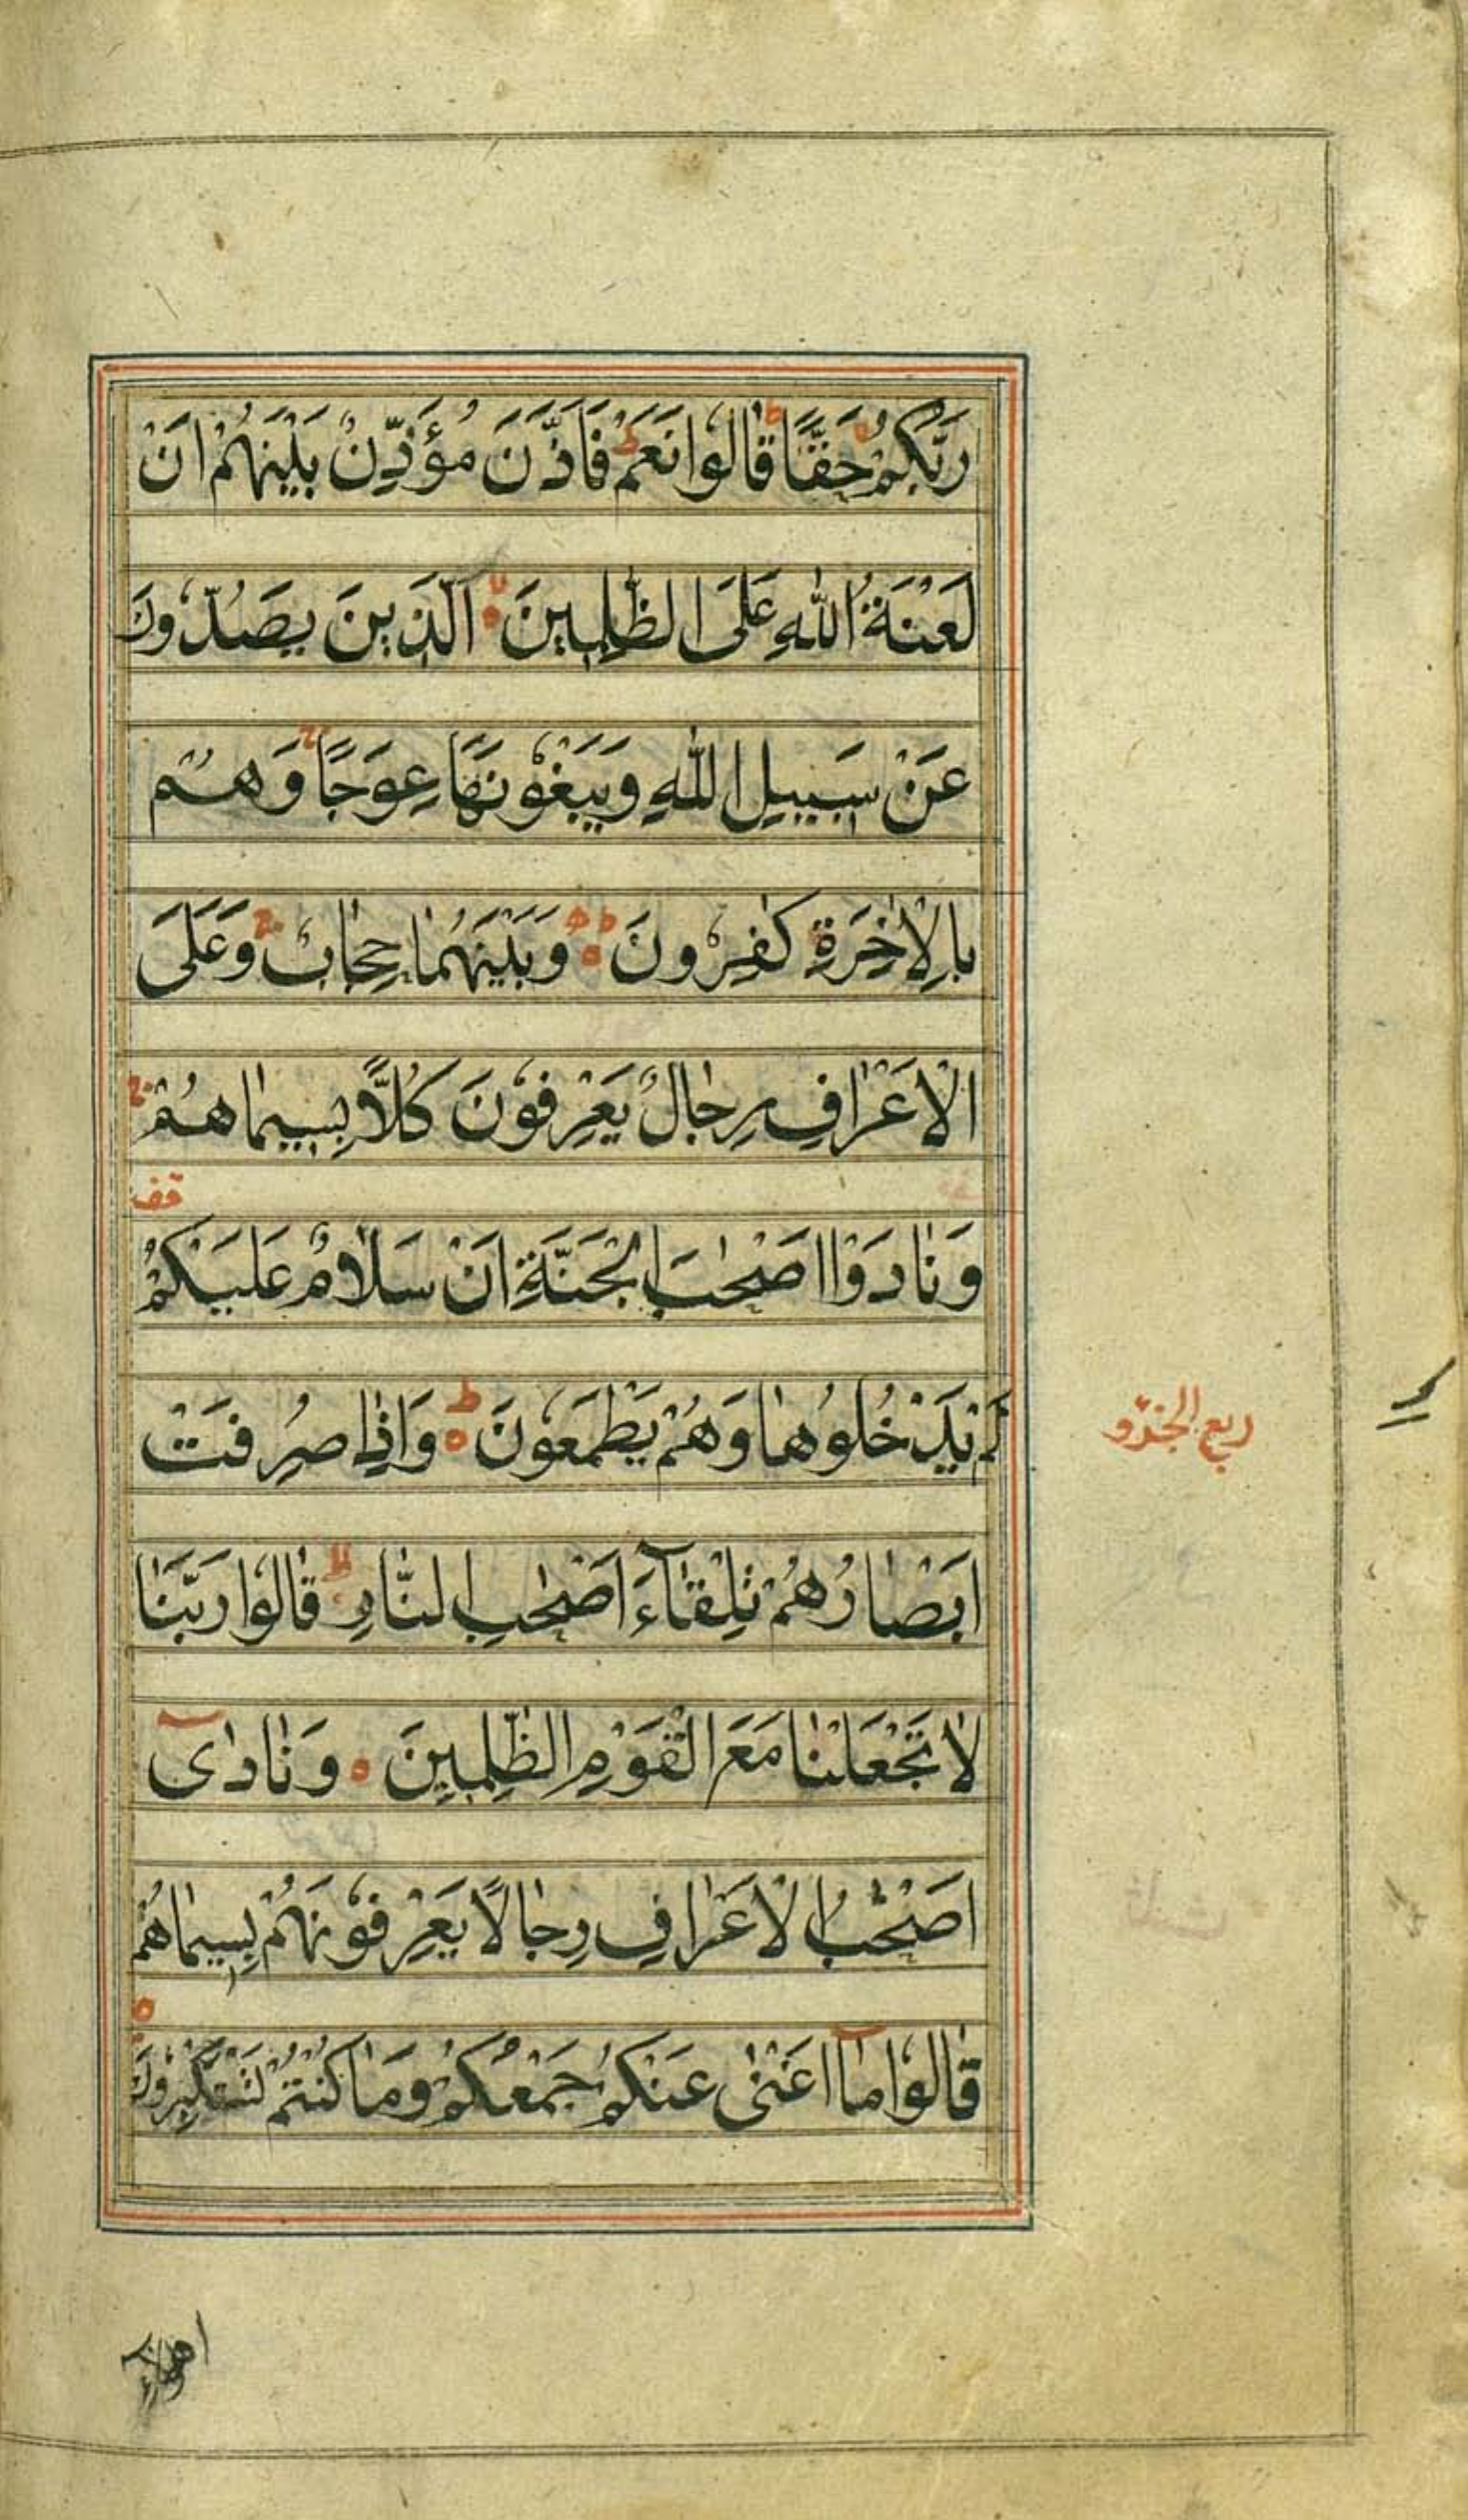 رَبُّكُمْ حَقًّا ط قَالُوا نَعَمْ ج فَاَذَّنَ مُؤَذِّنٌ بَيْنَهُمْ اَنْ
لَعْنَةُ اللّٰهِ عَلَى الظّٰلِمِينَ لا الَّذِينَ يَصُدُّونَ
عَنْ سَبِيلِ اللّٰهِ وَيَبْغُونَهَا عِوَجًا ج وَهُمْ
بِالْاٰخِرَةِ كٰفِرُونَ ط وَبَيْنَهُمَا حِجَابٌ ج وَعَلَى
الْاَعْرَافِ رِجَالٌ يَعْرِفُونَ كُلًّا بِسِيمَاهُمْ ج
قف
وَنَادَوْا اَصْحٰبَ الْجَنَّةِ اَنْ سَلَامٌ عَلَيْكُمْ
لَمْ يَدْخُلُوهَا وَهُمْ يَطْمَعُونَ ط وَاِذَا صُرِفَتْ
ربع الجزو
اَبْصَارُهُمْ تِلْقَآءَ اَصْحٰبِ النَّارِ لا قَالُوا رَبَّنَا
لَا تَجْعَلْنَا مَعَ الْقَوْمِ الظّٰلِمِينَ ه وَنَادٰى
اَصْحٰبُ الْاَعْرَافِ رِجَالًا يَعْرِفُونَهُمْ بِسِيمَاهُمْ
قَالُوا مَآ اَغْنٰى عَنْكُمْ جَمْعُكُمْ وَمَا كُنْتُمْ تَسْتَكْبِرُونَ ه
اهؤلاء